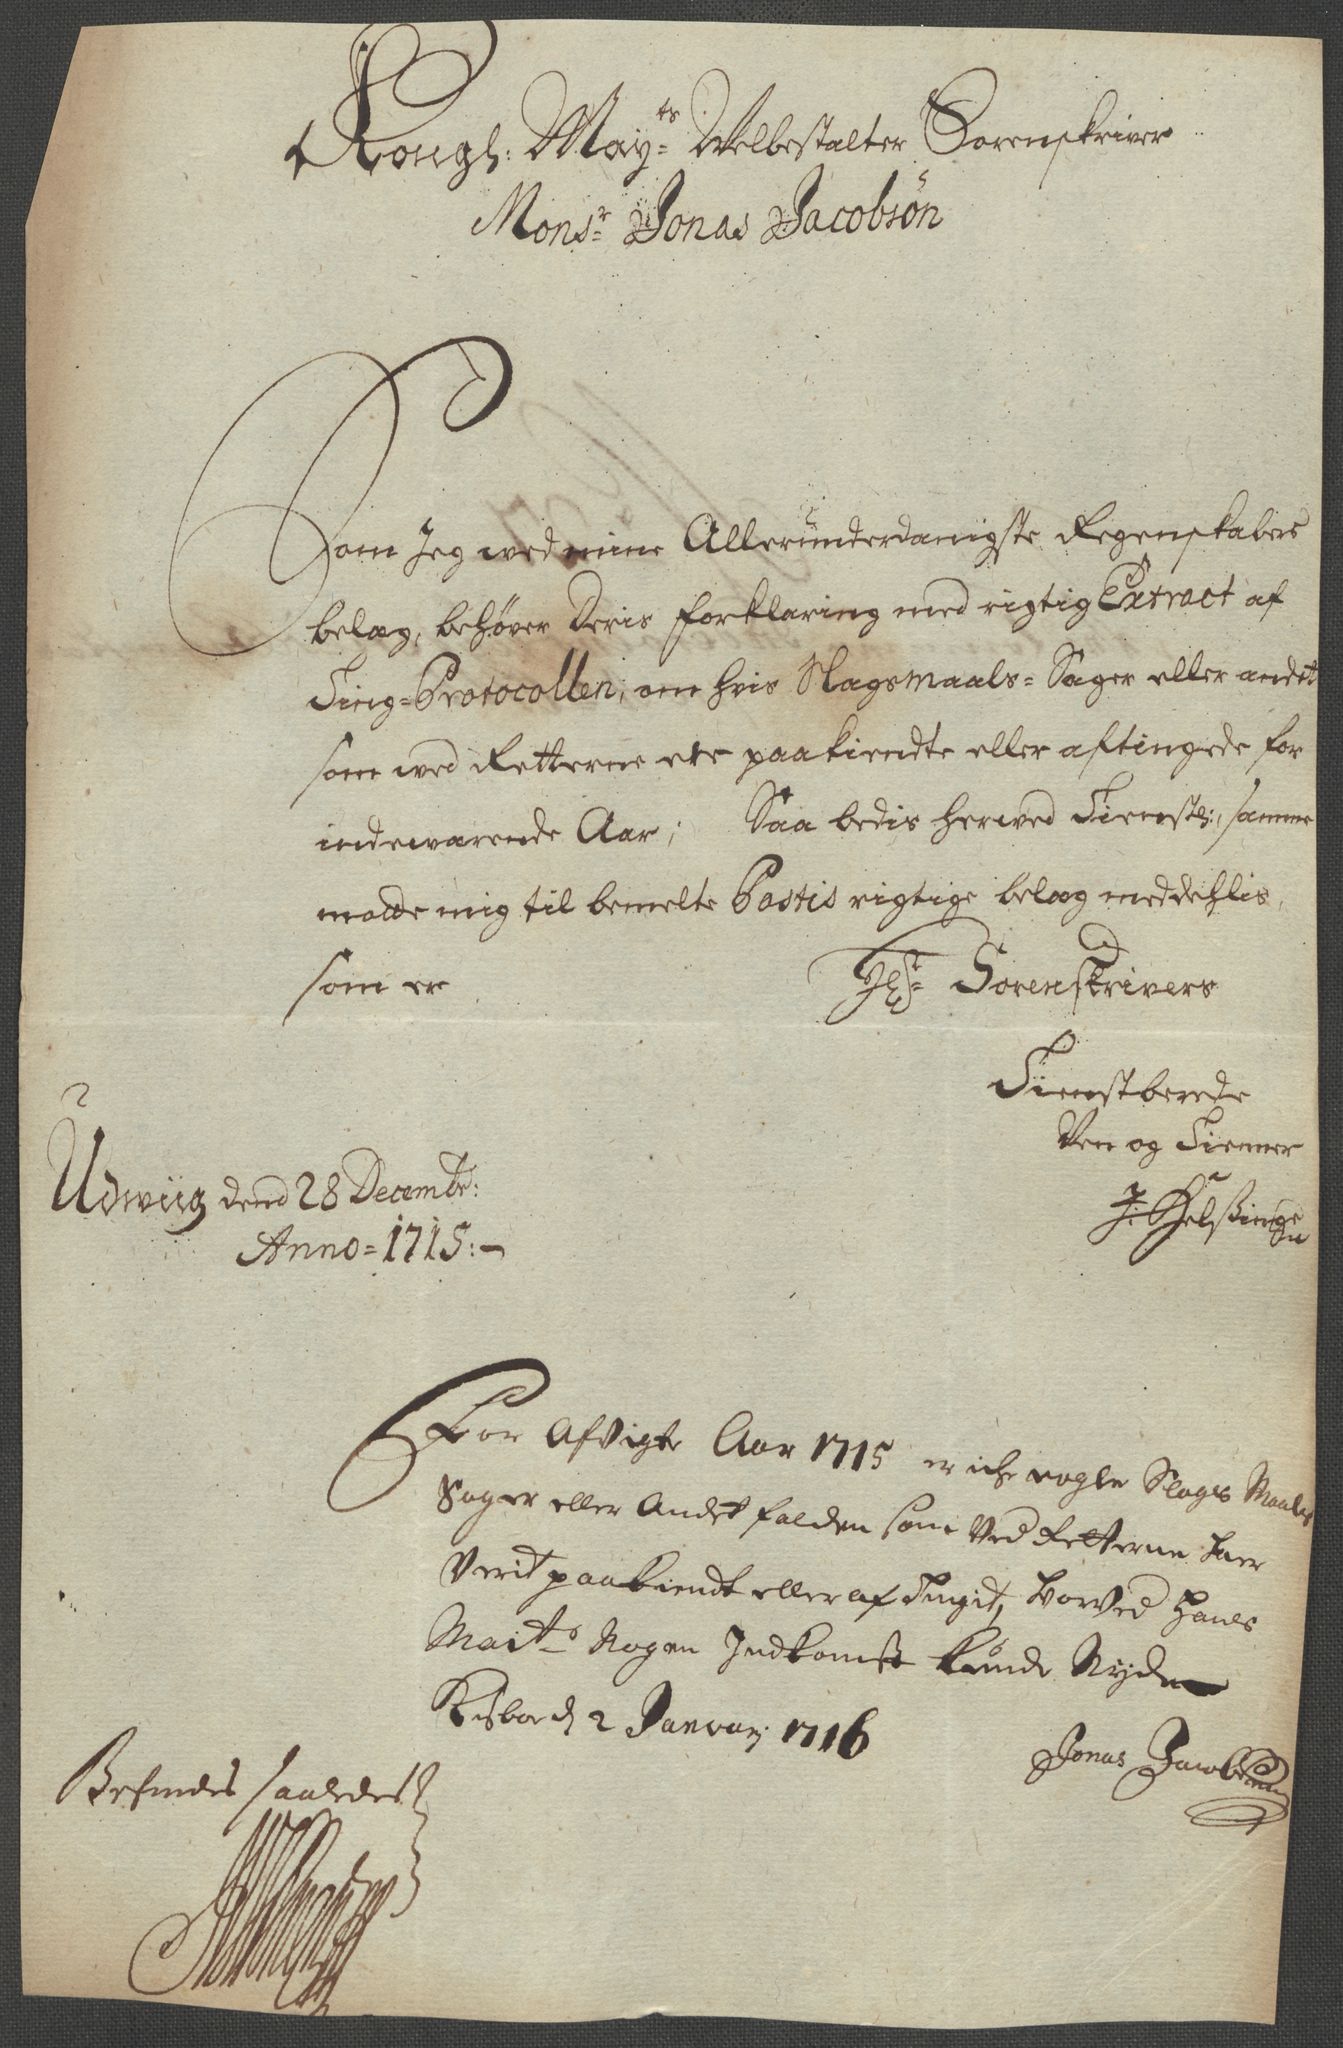 Kongl: May.ts Welbestalter Sorenskriver
Mons.r Jonas Jacobsøn
Som Jeg wed mine Allerunderdanigste Regenskabers
belæg, behøver Deris forklaring med rigtig Extract af
Ting-Protocollen, om hvis Slagsmaals-Sager eller andet
som wed Retterne ere paakiendte eller aftingede for
indewærende Aar; Saa bedis herwed Tienstl:, samme
motte mig til bemelte Postis rigtige belæg meddehlis,
som er Hr. Sorenskrivers
Tienstberede
Ven og Tienner
Udwiig dend 28 Decembr:
Anno = 1715:
J: Helsinge
For Afvigte Aar 1715 er iche nogle Slags Maals
Sager eller Andet falden som Ved Retterne haer
Verit paakiendt eller aftingit, hvorVed Hans
Maits Nogen Indkomst kunde Nyde
2 Januarj 1716
Jonas Jacobsen
Befindes saaledes